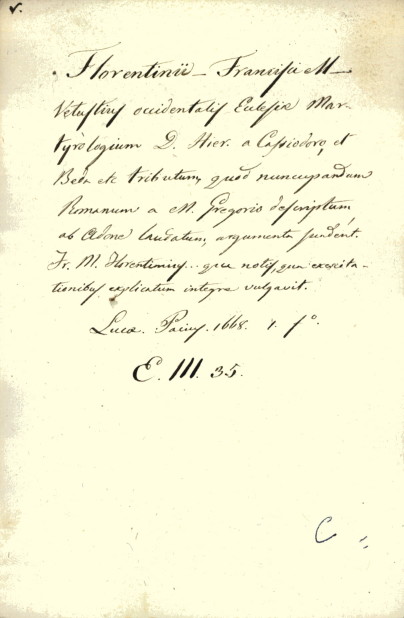 v.
Florentinii Francisci M
Vetustius occidentalis Eclesiæ Mar-
tyrologium D. Hier. a Cassiodoro, et
Beda etc tributum, quod nuncupandum
Romanum a M. Gregorio descriptum,
ab Adone laudatum, argumenta suadent.
Fr. M. Florentinius.. qui notis, qua exercita-
tionibus explicatum integre vulgavit.
Lucæ. Pacius. 1668. 1. fo.
E. III. 35.
C